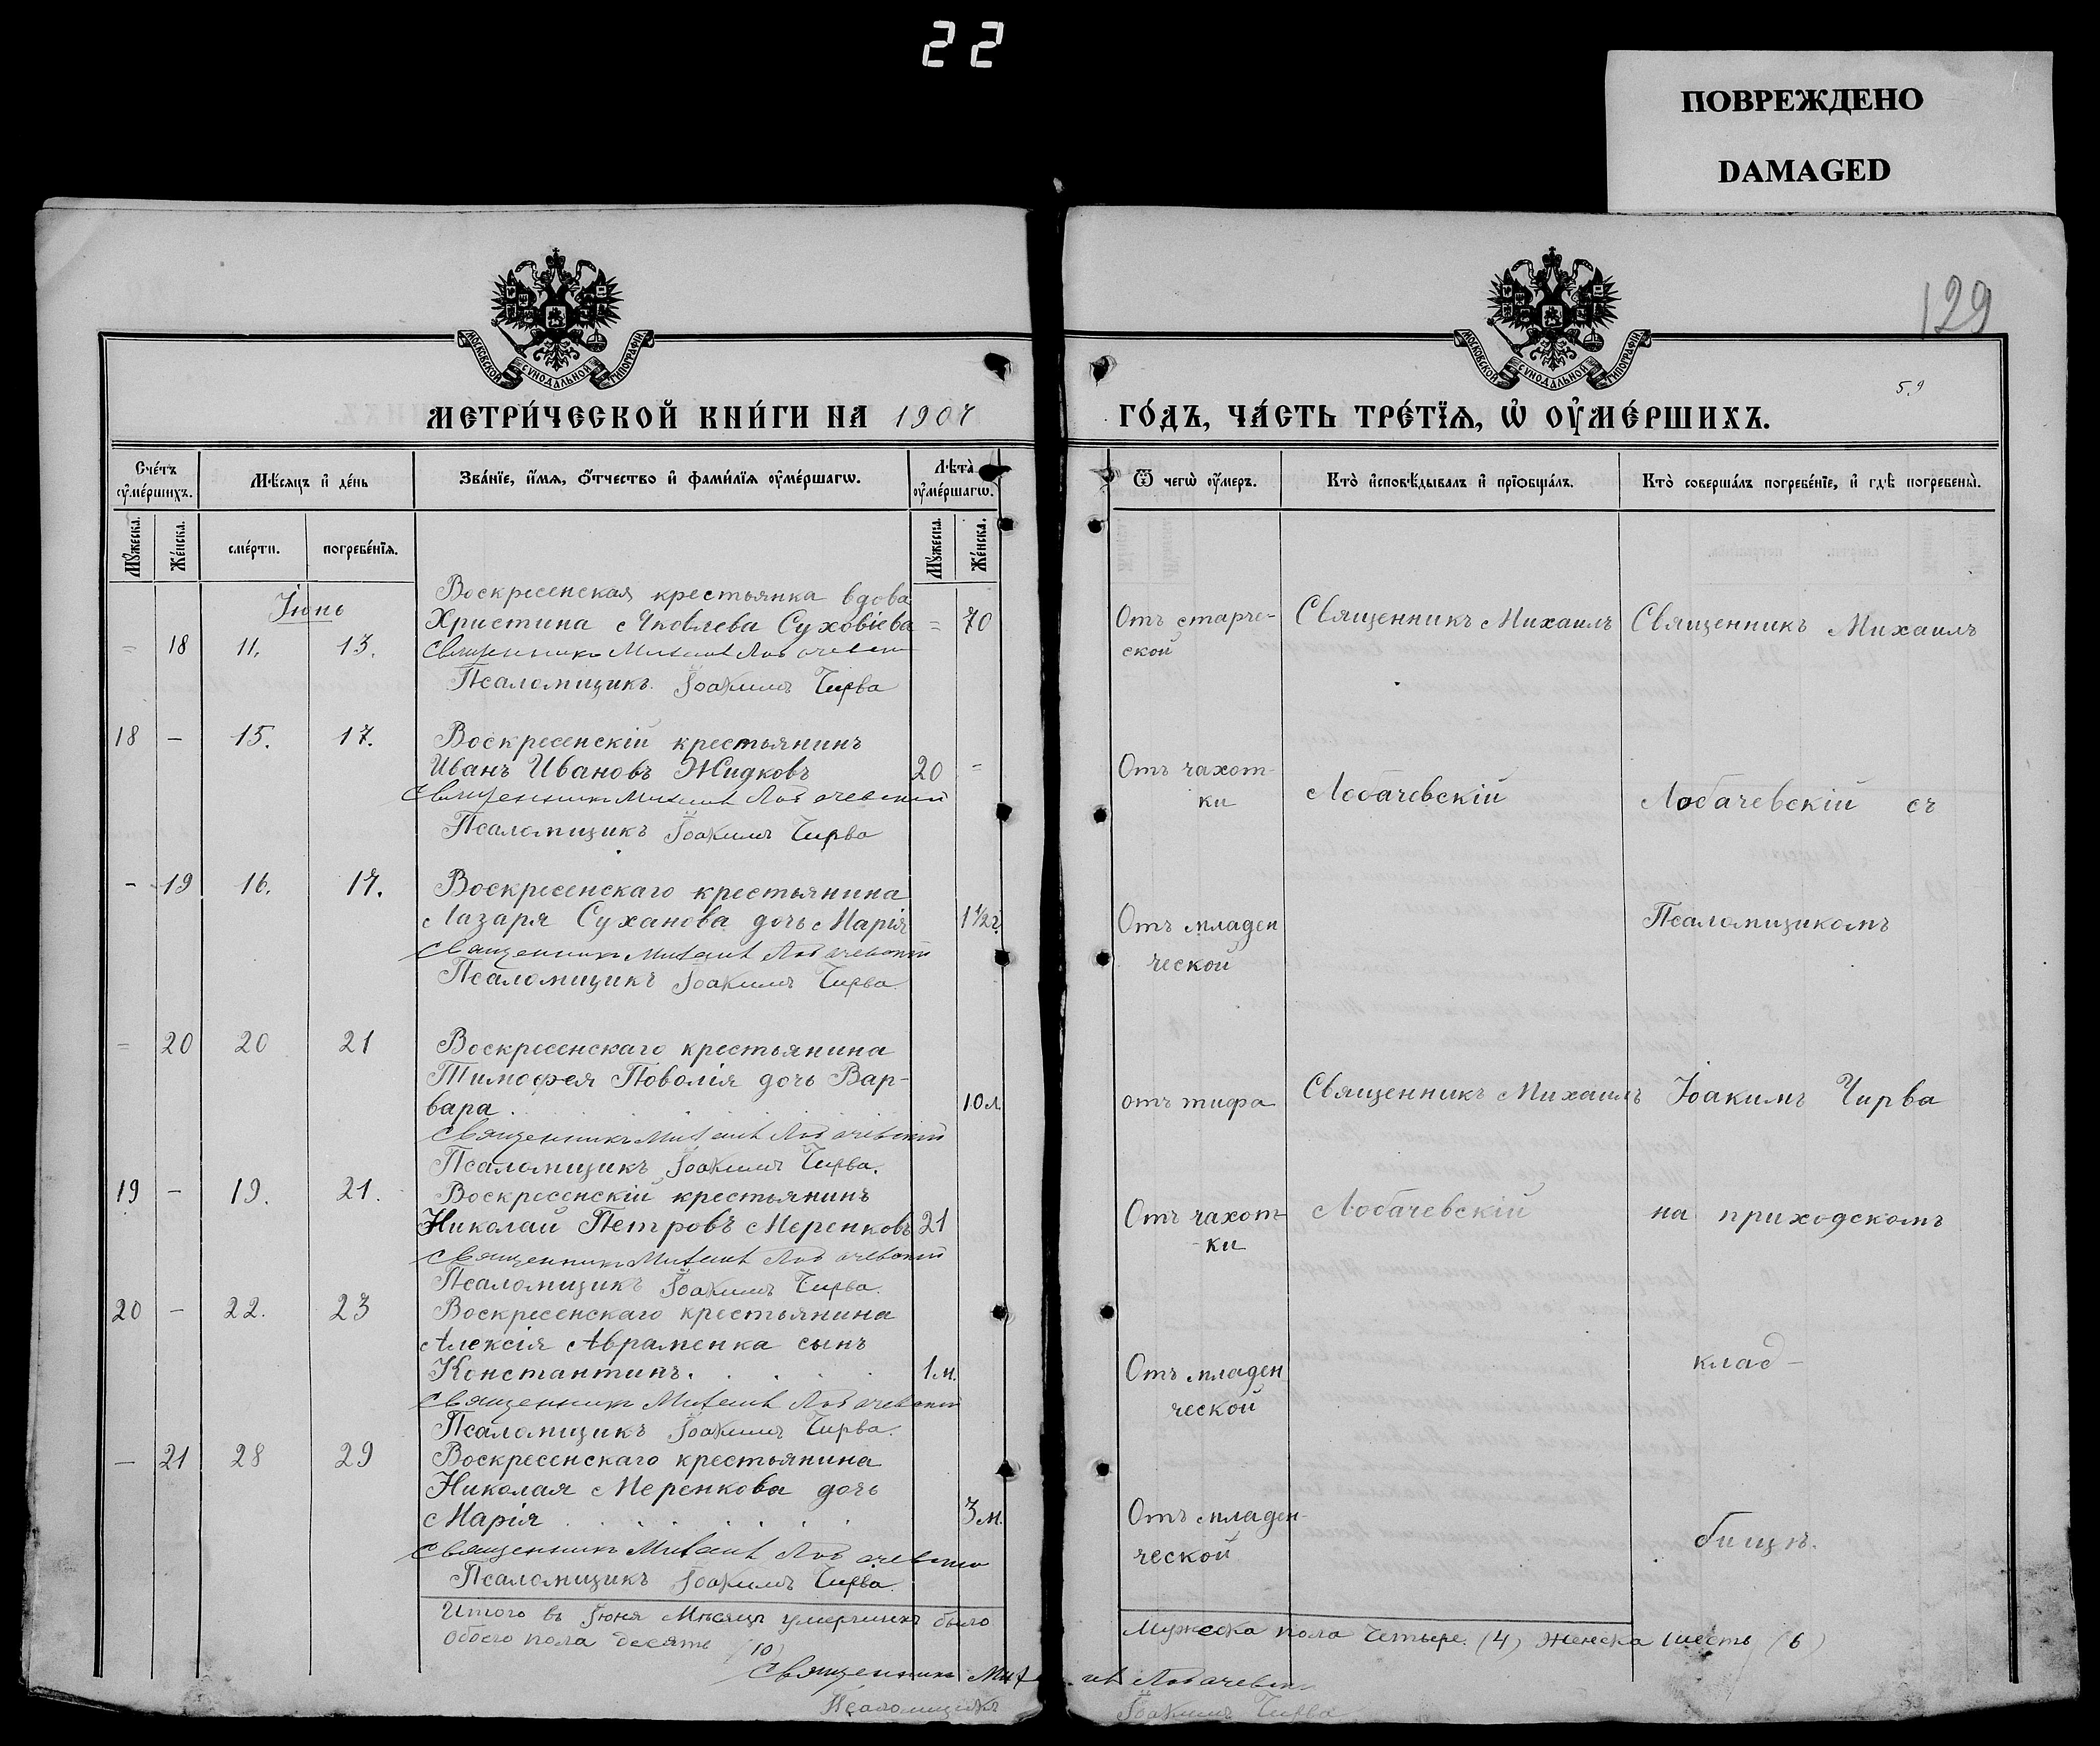 22
ПОВРЕЖДЕНО
DAMAGED
129
59
МОСКОВСКОЙ СѴНОДАЛЬНОЙ ТИПОГРАФІИ
МОСКОВСКОЙ СѴНОДАЛЬНОЙ ТИПОГРАФІИ
МЕТРИ́ЧЕСКОЙ КНИ́ГИ НА 1907
ГО́ДЪ, ЧА́СТЬ ТРЕ́ТЇѦ, Ѡ҆ ОУ҆МЕ́РШИХЪ.
Сче́тъ оу҆ме́ршихъ.
Мѣ́сяцъ и҆ де́нь
Зва́нїе, и҆́мѧ, ѻ҆́тчество и҆ фами́лїѧ оу҆ме́ршагѡ.
Лѣ́та оу҆ме́ршагѡ.
Ѿ чегѡ̀ оу҆́меръ.
Кто̀ и҆сповѣ́дывалъ и҆ прїѡбща́лъ.
Кто̀ соверша́лъ погребе́нїе, и҆ гдѣ̀ погребены̀.
Мꙋ́жеска.
Же́нска.
сме́рти.
погребе́нїѧ.
Мꙋ́жеска.
Же́нска.
Іюнь
Воскресенская крестьянка вдова
Христина Яковлева Суховіева = 70
= 18 11. 13.
Священникъ Михаилъ Лобачевскій
Псаломщикъ Іоакимъ Чирва
Отъ старче-
ской
Священникъ Михаилъ
Священникъ Михаилъ
18 – 15. 17. Воскресенскій крестьянинъ
Иванъ Ивановъ Жидковъ 20 =
Священникъ Михаилъ Лобачевскій
Псаломщикъ Іоакимъ Чирва
Отъ чахот-
ки
Лобачевскій
Лобачевскій съ
– 19 16. 17. Воскресенскаго крестьянина
Лазаря Суханова дочь Марія 1½ г.
Священникъ Михаилъ Лобачевскій
Псаломщикъ Іоакимъ Чирва
Отъ младен
ческой
Псаломщикомъ
= 20 20 21 Воскресенскаго крестьянина
Тимофея Поволія дочь Вар-
вара . 10 л.
Священникъ Михаилъ Лобачевскій
Псаломщикъ Іоакимъ Чирва.
отъ тифа
Священникъ Михаилъ
Іоакимъ Чирва
19 – 19. 21. Воскресенскій крестьянинъ
Николай Петровъ Меренковъ 21
Священникъ Михаилъ Лобачевскій
Псаломщикъ Іоакимъ Чирва.
Отъ чахот-
-ки
Лобачевскій
на приходскомъ
20 – 22. 23 Воскресенскаго крестьянина
Алексія Авраменка сынъ
Константинъ. . . . . 1 м.
Священникъ Михаилъ Лобачевскій
Псаломщикъ Іоакимъ Чирва.
Отъ младен
ческой
клад-
– 21 28 29 Воскресенскаго крестьянина
Николая Меренкова дочь
Марія . . . . . . 3 м.
Священникъ Михаилъ Лобачевскій
Псаломщикъ Іоакимъ Чирва
Отъ младен-
ческой
бищѣ.
Итого въ Іюня Мѣсяцѣ умершихъ было
обоего пола десять (10)
Мужеска пола Четыре (4) Женска шесть (6)
Священникъ Михаилъ Лобачевскій
Псаломщикъ Іоакимъ Чирва